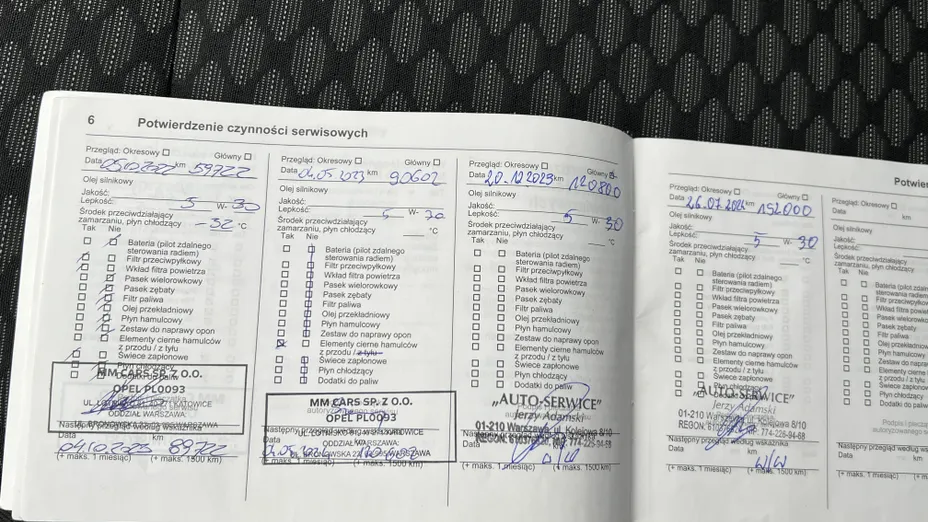 6 Potwierdzenie czynności serwisowych
Przegląd: Okresowy Główny
Data 05.10.2022 km 59722
Olej silnikowy
Jakość:
Lepkość: 5 W- 30
Środek przeciwdziałający
zamarzaniu, płyn chłodzący -32 °C
Tak Nie
Bateria (pilot zdalnego
sterowania radiem)
Filtr przeciwpyłkowy
Wkład filtra powietrza
Pasek wielorowkowy
Pasek zębaty
Filtr paliwa
Olej przekładniowy
Płyn hamulcowy
Zestaw do naprawy opon
Elementy cierne hamulców
z przodu / z tyłu
Świece zapłonowe
Płyn chłodzący
MM CARS SP. Z O.O.
OPEL PL0093
ODDZIAŁ WARSZAWA:
Następny przegląd według wskaźnika
Data km
04.10.2023 89722
(+ maks. 1 miesiąc) (+ maks. 1500 km)
Przegląd: Okresowy Główny
Data 04.05 2023 km 90602
Olej silnikowy
Jakość:
Lepkość: 5 W-
Środek przeciwdziałający
zamarzaniu, płyn chłodzący °C
Tak Nie
Bateria (pilot zdalnego
sterowania radiem)
Filtr przeciwpyłkowy
Wkład filtra powietrza
Pasek wielorowkowy
Pasek zębaty
Filtr paliwa
Olej przekładniowy
Płyn hamulcowy
Zestaw do naprawy opon
Elementy cierne hamulców
z przodu / z tyłu
Świece zapłonowe
Płyn chłodzący
Dodatki do paliw
MM CARS SP. Z O.O.
OPEL PL0093
ODDZIAŁ WARSZAWA:
Następny przegląd według wskaźnika
(+ maks. 1 miesiąc) (+ maks. 1500 km)
Przegląd: Okresowy Główny
Data 20.10 2023 km 120800
Olej silnikowy
Jakość:
Lepkość: 5 W- 30
Środek przeciwdziałający
zamarzaniu, płyn chłodzący °C
Tak Nie
Bateria (pilot zdalnego
sterowania radiem)
Filtr przeciwpyłkowy
Wkład filtra powietrza
Pasek wielorowkowy
Pasek zębaty
Filtr paliwa
Olej przekładniowy
Płyn hamulcowy
Zestaw do naprawy opon
Elementy cierne hamulców
z przodu / z tyłu
Świece zapłonowe
Płyn chłodzący
Dodatki do paliw
„AUTO-SERWICE”
Jerzy Adamski
01-210 Warszawa, ul. Kolejowa 8/10
Data km
(+ maks. 1 miesiąc) (+ maks. 1500 km)
Przegląd: Okresowy Główny
Data 26.07 2024 km 152000
Olej silnikowy
Jakość:
Lepkość: 5 W- 30
Środek przeciwdziałający
zamarzaniu, płyn chłodzący °C
Tak Nie
Bateria (pilot zdalnego
sterowania radiem)
Filtr przeciwpyłkowy
Wkład filtra powietrza
Pasek wielorowkowy
Pasek zębaty
Filtr paliwa
Olej przekładniowy
Płyn hamulcowy
Zestaw do naprawy opon
Elementy cierne hamulców
z przodu / z tyłu
Świece zapłonowe
Płyn chłodzący
„AUTO-SERWICE”
Jerzy Adamski
01-210 Warszawa, ul. Kolejowa 8/10
774-228-94-68
Następny przegląd według wskaźnika
Data km
(+ maks. 1 miesiąc) (+ maks. 1500 km)
Przegląd: Okresowy
Data km
Olej silnikowy
Jakość:
Lepkość:
Środek przeciwdziałający
zamarzaniu, płyn chłodzący
Tak Nie
Bateria (pilot zdalnego
sterowania radiem)
Filtr przeciwpyłkowy
Wkład filtra powietrza
Pasek wielorowkowy
Pasek zębaty
Filtr paliwa
Olej przekładniowy
Płyn hamulcowy
Zestaw do naprawy opon
Elementy cierne hamulców
z przodu / z tyłu
Świece zapłonowe
Płyn chłodzący
Dodatki do paliw
Następny przegląd według
Data km
(+ maks. 1 miesiąc)